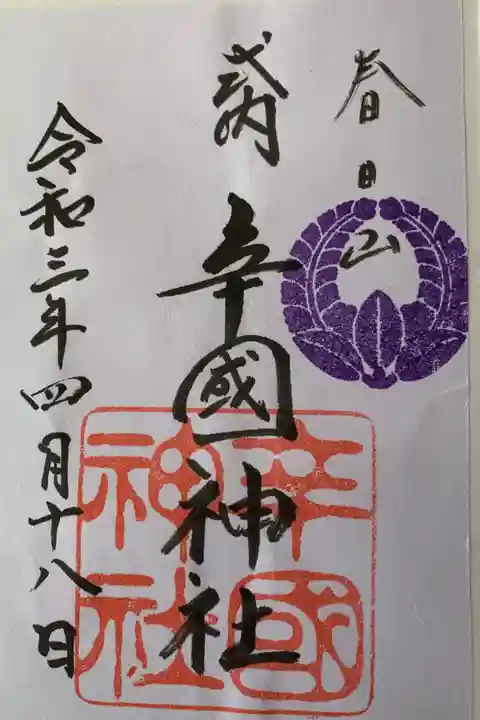 春日山
式内
辛國神社
令和三年四月十八日
辛國
神社